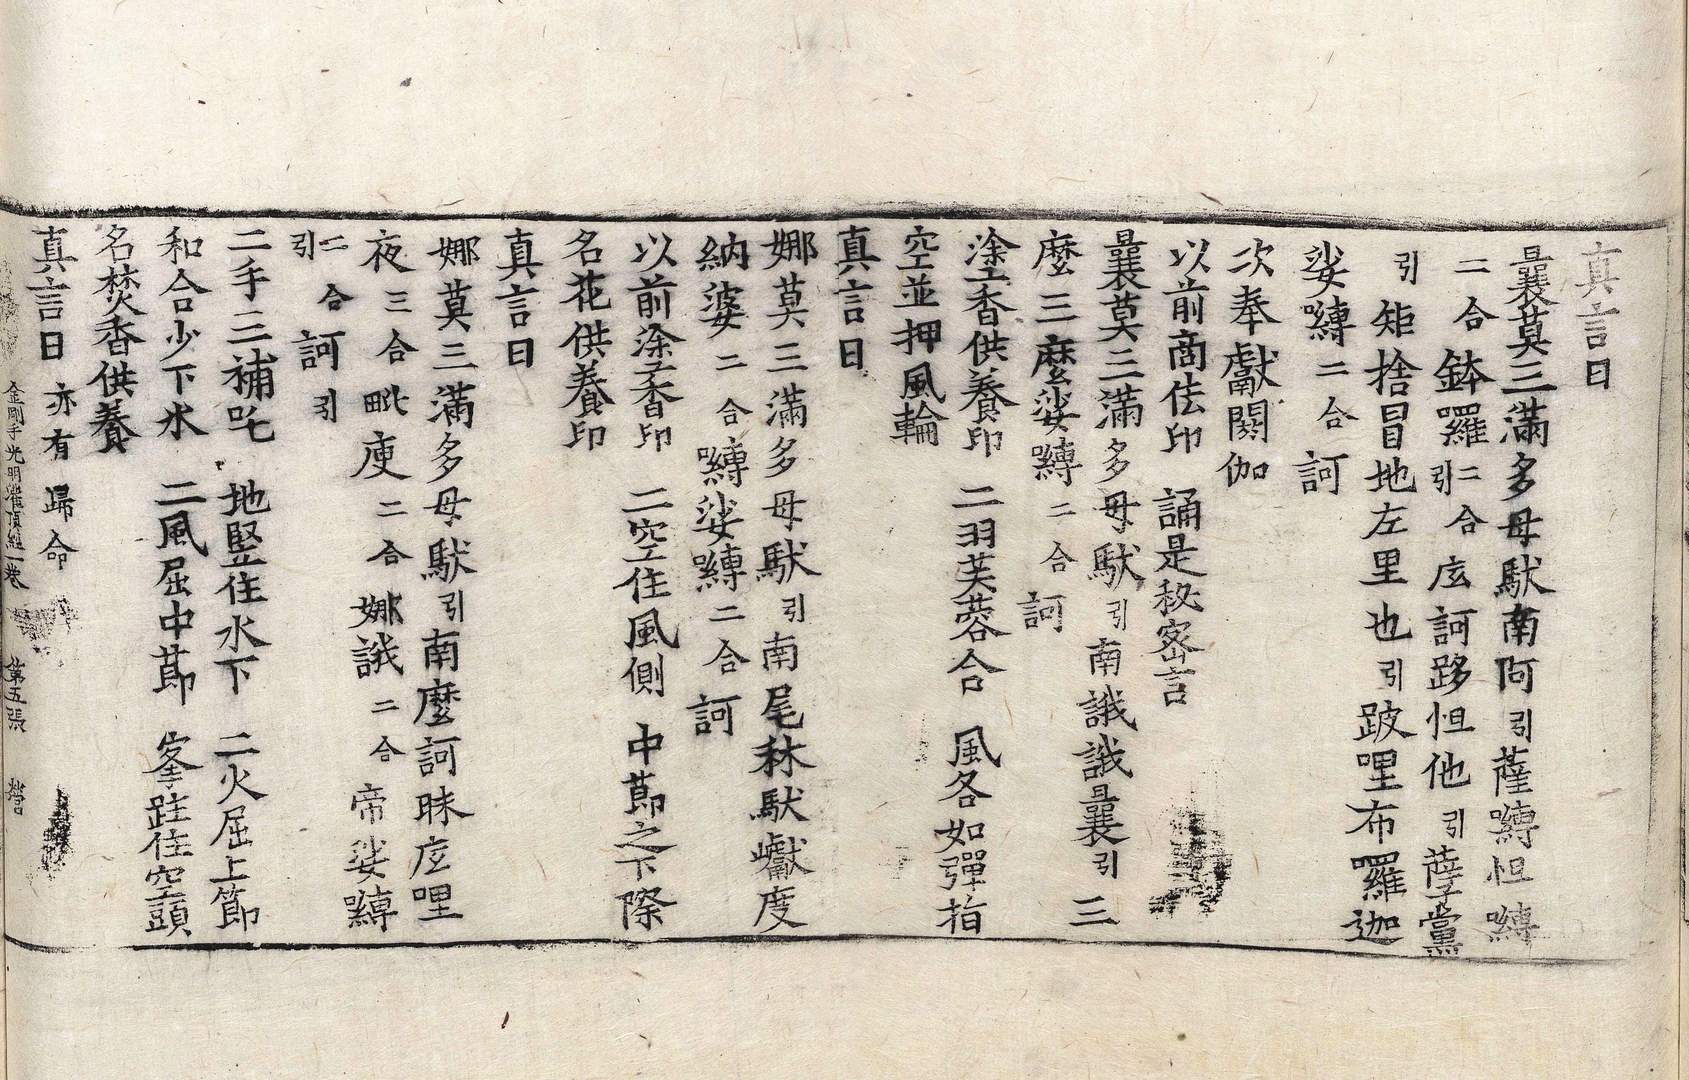 真言曰
曩莫三滿多母馱南阿引薩嚩怛嚩
二合鉢囉二合引庅訶跢怛他引薩黨
引矩捨冒地左里也引跛哩布囉迦
娑嚩二合訶
次奉獻閼伽
以前商佉印 誦是秘密言
曩莫三滿多母馱引南誐誐曩引三
麼三麼娑嚩二合訶
塗香供養印 二羽芙蓉合 風各如彈指
空並押風輪
真言曰
娜莫三滿多母馱引南尾秫馱巘度
納婆二合嚩娑嚩二合訶
以前塗香印 二空住風側 中莭之下際
名花供養印
真言曰
娜莫三滿多母馱引南麼訶昧庅哩
夜三合毗庾二合娜誐二合帝娑嚩
二合引訶引
二手三補吒 地豎住水下 二火屈上節
和合少下水 二風屈中莭 峯跓住空頭
名焚香供養
真言曰 亦有歸命
金剛手光明灌頂經一卷 第五張 營